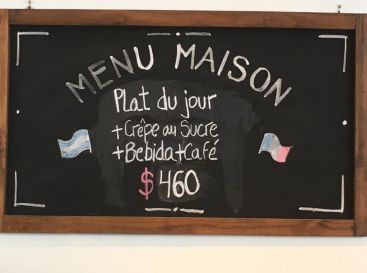 MENU MAISON
Plat du jour
+Crêpe au Sucre
+Bebida+Café
$460